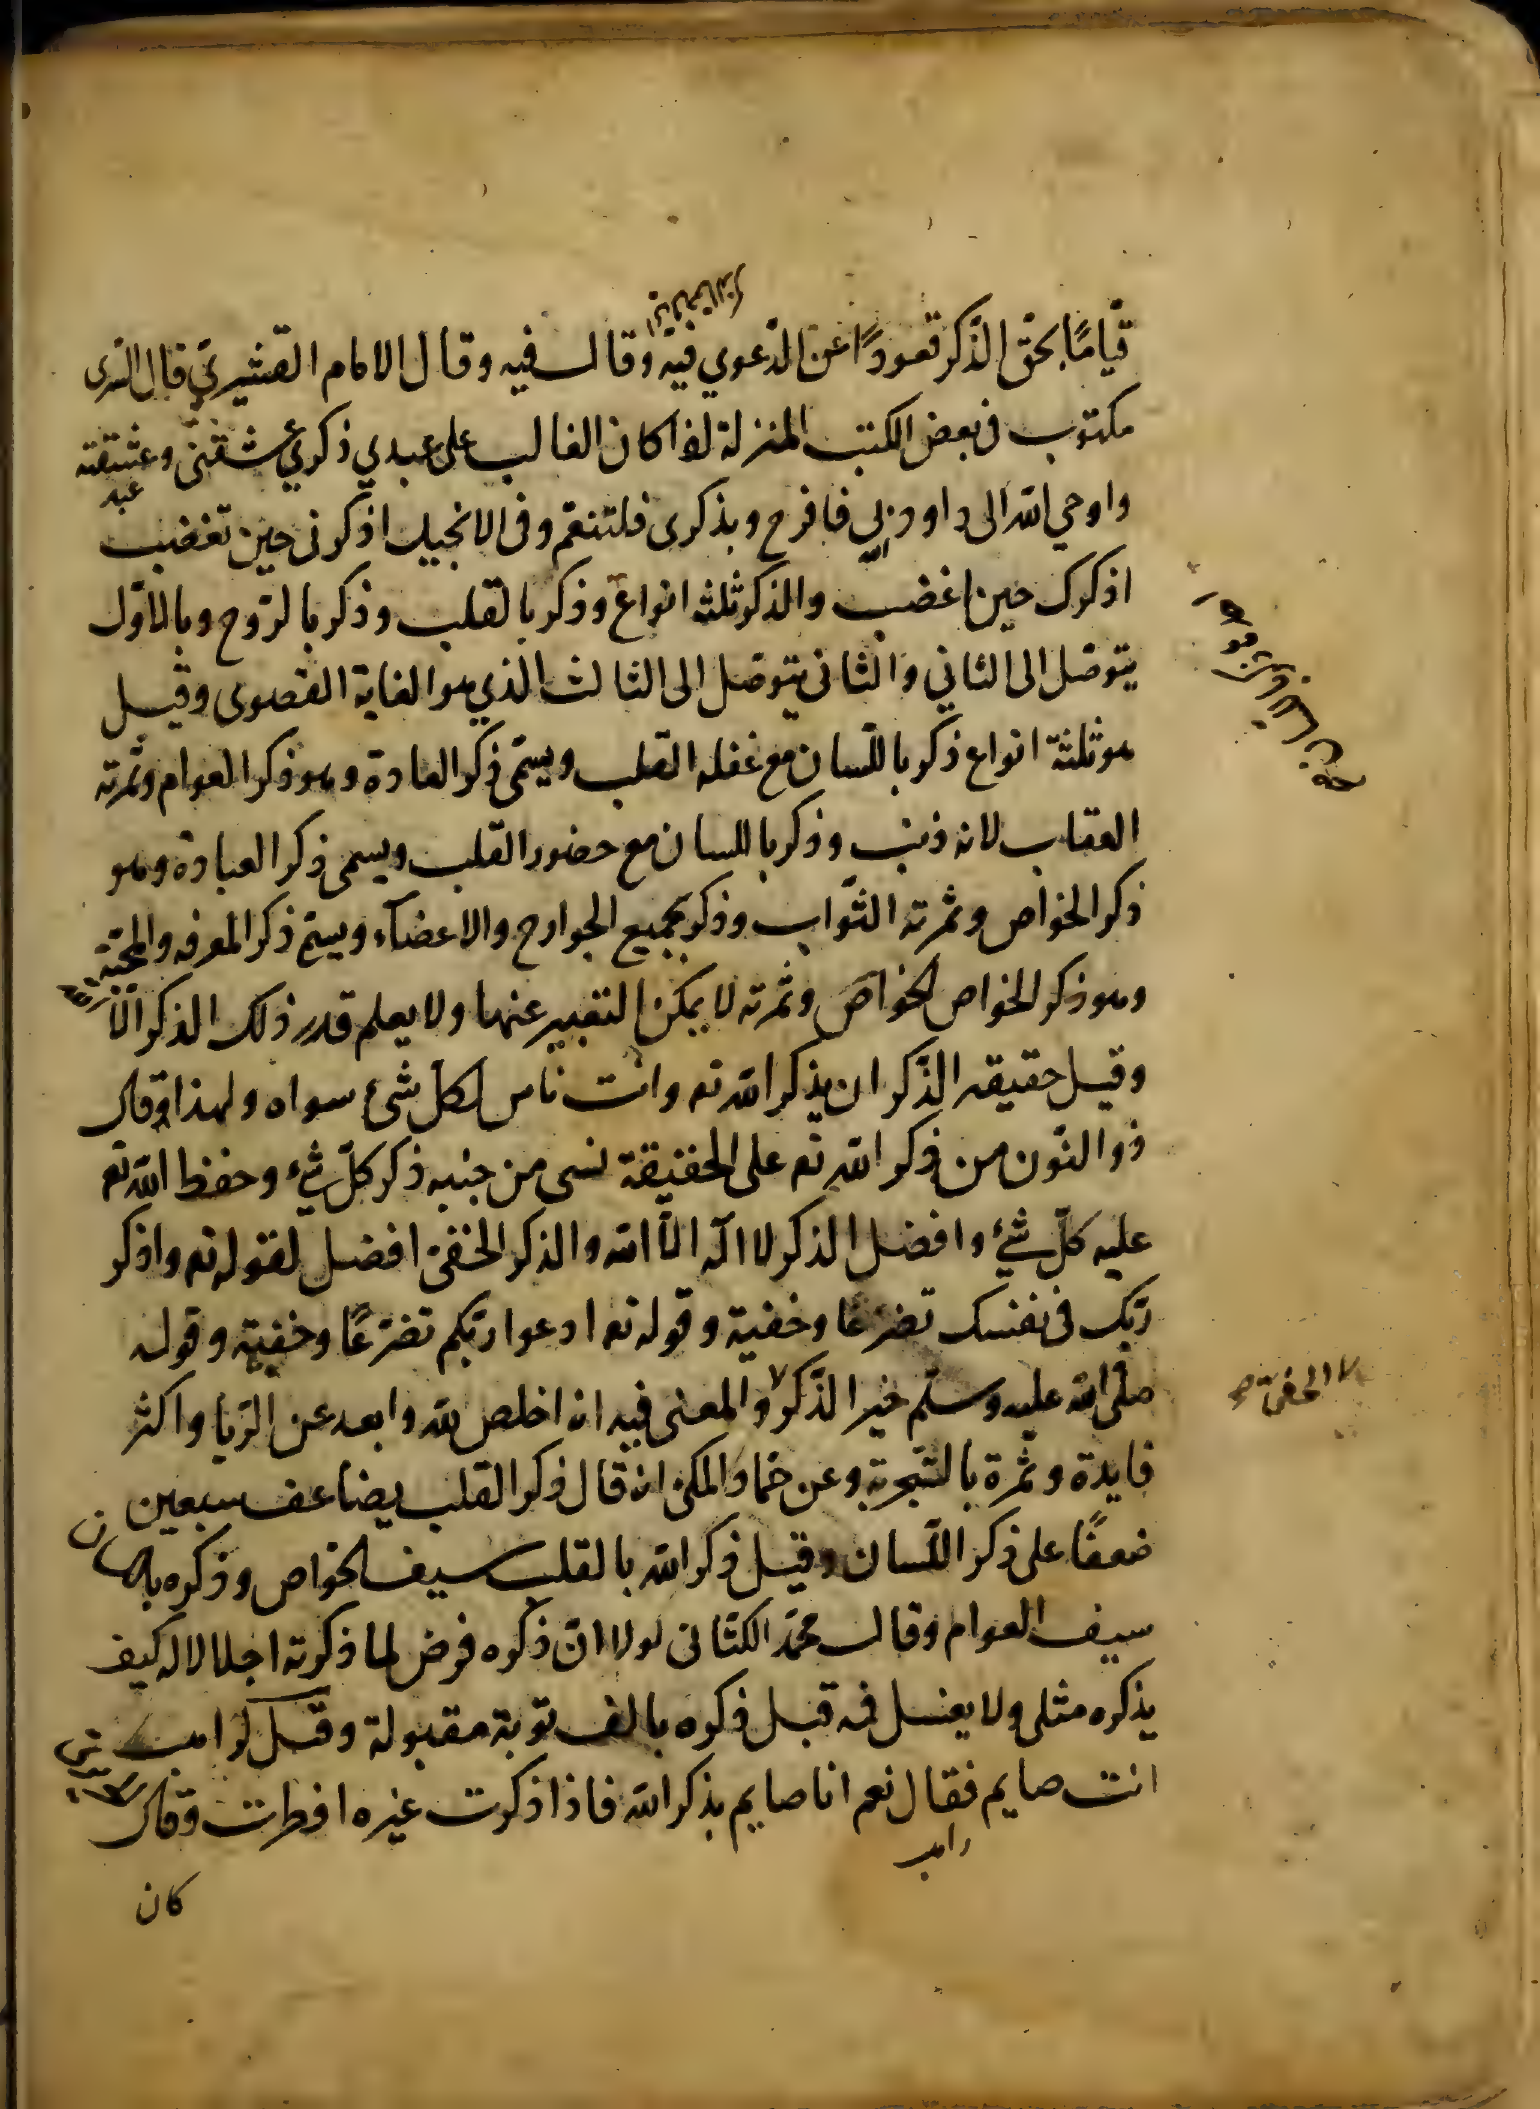 قيامًا بحق الذّكر قعودًا عن الدّعوي فيه وقال فيه وقال الامام القشيري قال السّرى
مكتوب فى بعض الكتب المنزلة اذا كان الغالب على عبدي ذكري عشقنى وعشقته
واوحي الله الى داود بي فافرح وبذكرى فلتنعّم وفى الانجيل اذكرنى حين تغضب
اذكرك حين اغضب والذكر ثلثه انواع وذكر بالقلب وذكر بالرّوح وبالاوّل
يتوصّل الى الثاني والثانى يتوصّل الى الثالث الذي هو الغاية القصوى وقيل
هو ثلثة انواع ذكر باللّسان مع غفله القلب ويسمّى ذكر العادة وهو ذكر العوام وثمرته
العقاب لانه ذنب وذكر باللسان مع حضور القلب ويسمى ذكر العبادة وهو
ذكر الخواص وثمرته الثّواب وذكر بجميع الجوارح والاعضآء ويسمّ ذكر المعرفه والمحبّة
وهو ذكر الخواص لخواصّ وثمرته لا يمكن التعبير عنها ولا يعلم قدر ذلك الذكر الّا
وقيل حقيقه الذّكر ان يذكر الله تع وانت ناس لكلّ شئ سواه ولهذا وقال
ذو النّون من ذكر الله تع على الحقيقة نسى من جنبه ذكر كلّ شئ وحفظ الله تع
عليه كلّ شئ وافضل الذكر لا اله الّا الله والذكر الخفىّ افضل لقوله تع واذكر
ربّك فى نفسك تضرعًا وخفية وقوله تع ادعوا ربّكم تضرّعًا وخفية وقوله
صلّى الله عليه وسلّم خير الذّكر والمعنى فيه انه اخلص لله وابعد عن الرّيا واكثر
الخفىّ صح
فايدة وثمرة بالتّجربة وعن حماد المكى انه قال ذكر القلب يضاعف سبعين
ضعفًا على ذكر اللّسان وقيل ذكر الله بالقلب سيف الخواص وذكره باللسان
سيف العوام وقال محمّد الكتّانى لولا انّ ذكره فرض لما ذكرته اجلالا له كيف
يذكره مثلى ولا يغسل فمه قبل ذكره بالف توبة مقبولة وقيل لراهب
انت صايم فقال نعم انا صايم بذكر الله فاذا ذكرت غيره افطرت وقال
راهب
كان